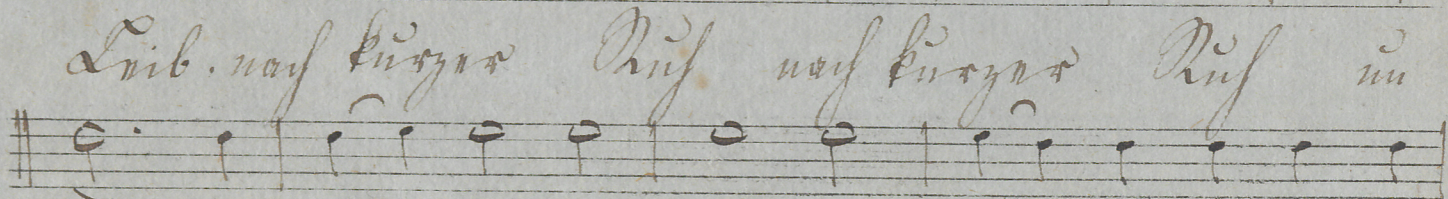 Leib. nach kurzer Ruh nach kurzer Ruh un